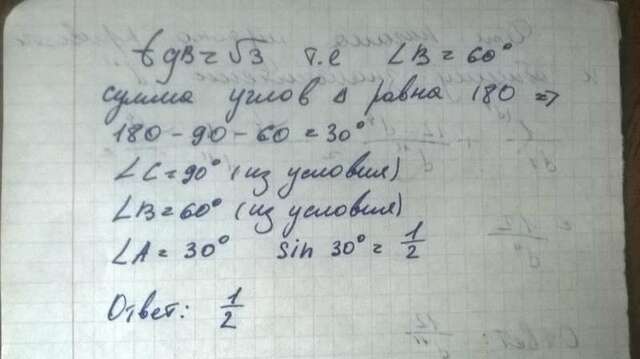 tgB = √3 т.е ∠B = 60°
сумма углов Δ равна 180 =>
180 - 90 - 60 = 30°
∠C = 90° (из условия)
∠B = 60° (из условия)
∠A = 30° sin 30° = 1/2
Ответ: 1/2